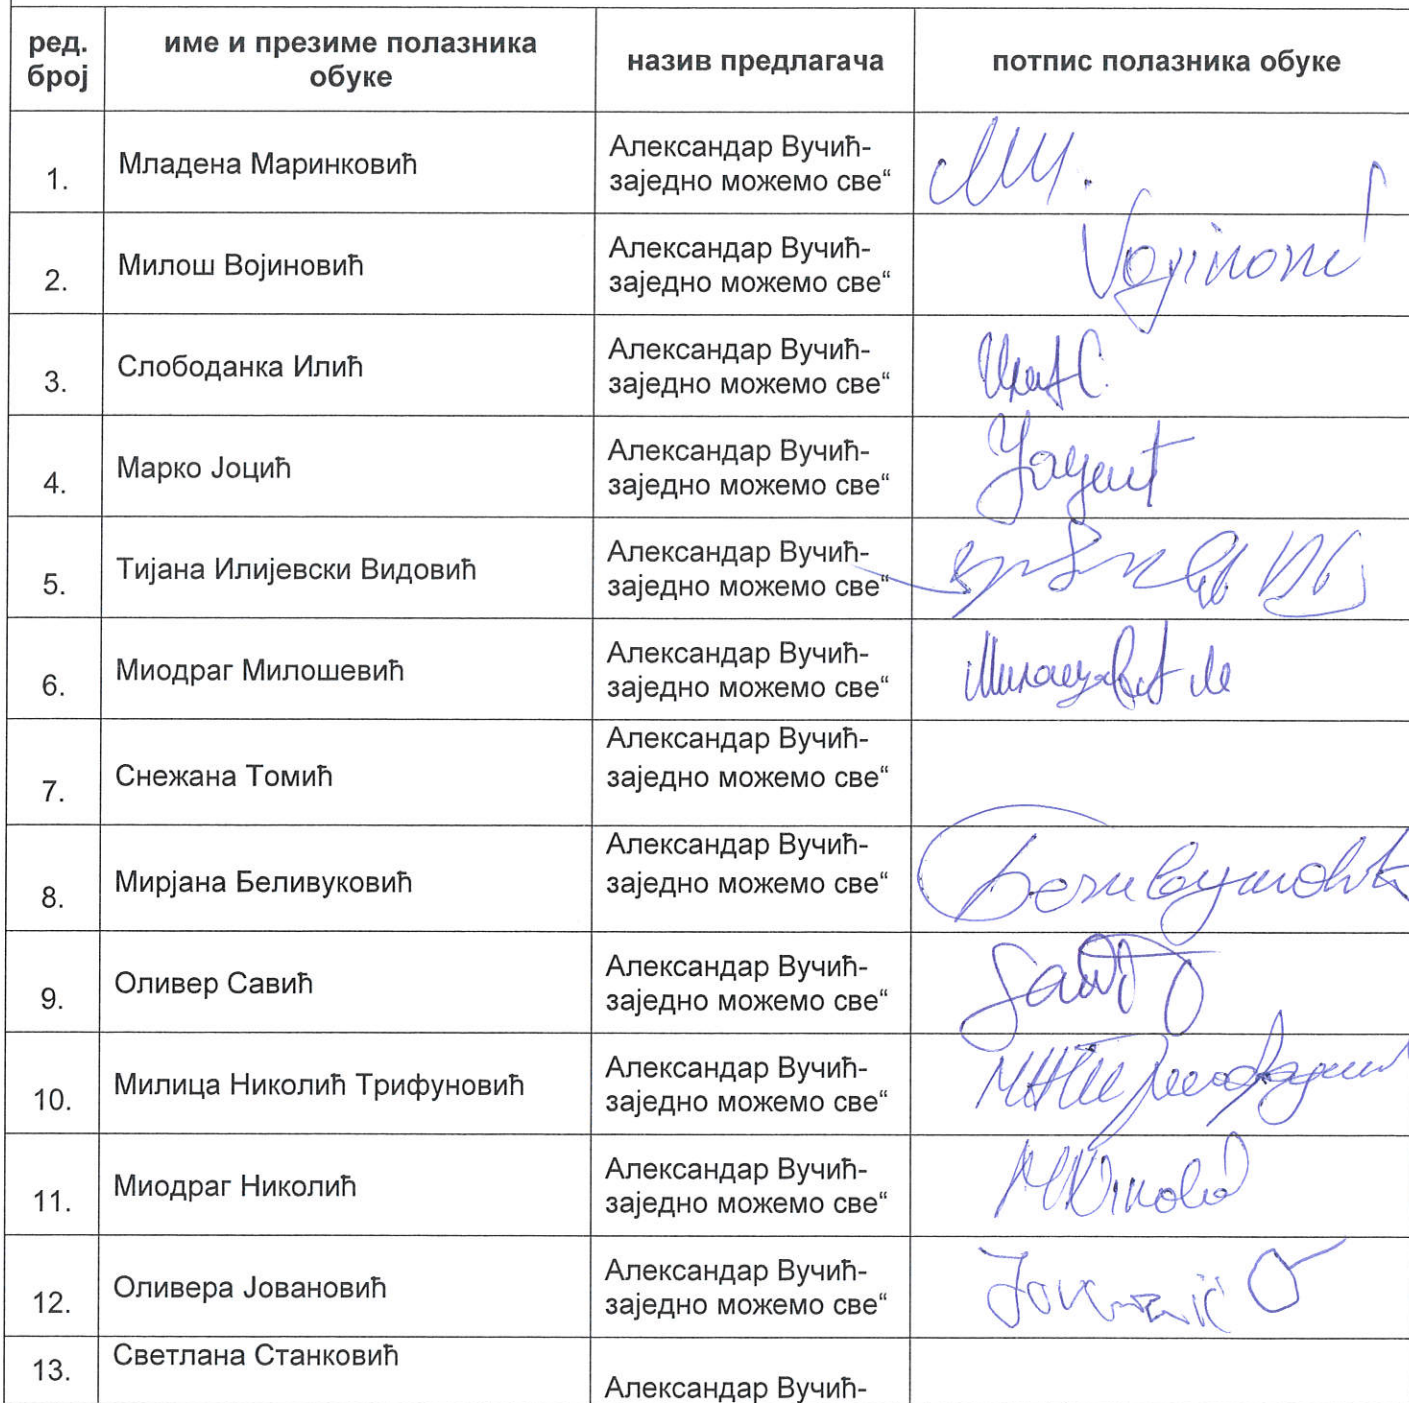 ред. број
име и презиме полазника обуке
назив предлагача
потпис полазника обуке
1.
Младена Маринковић
Александар Вучић-
заједно можемо све“
2.
Милош Војиновић
Александар Вучић-
заједно можемо све“
3.
Слободанка Илић
Александар Вучић-
заједно можемо све“
4.
Марко Јоцић
Александар Вучић-
заједно можемо све“
5.
Тијана Илијевски Видовић
Александар Вучић-
заједно можемо све“
6.
Миодраг Милошевић
Александар Вучић-
заједно можемо све“
7.
Снежана Томић
Александар Вучић-
заједно можемо све“
8.
Мирјана Беливуковић
Александар Вучић-
заједно можемо све“
9.
Оливер Савић
Александар Вучић-
заједно можемо све“
10.
Милица Николић Трифуновић
Александар Вучић-
заједно можемо све“
11.
Миодраг Николић
Александар Вучић-
заједно можемо све“
12.
Оливера Јовановић
Александар Вучић-
заједно можемо све“
13.
Светлана Станковић
Александар Вучић-